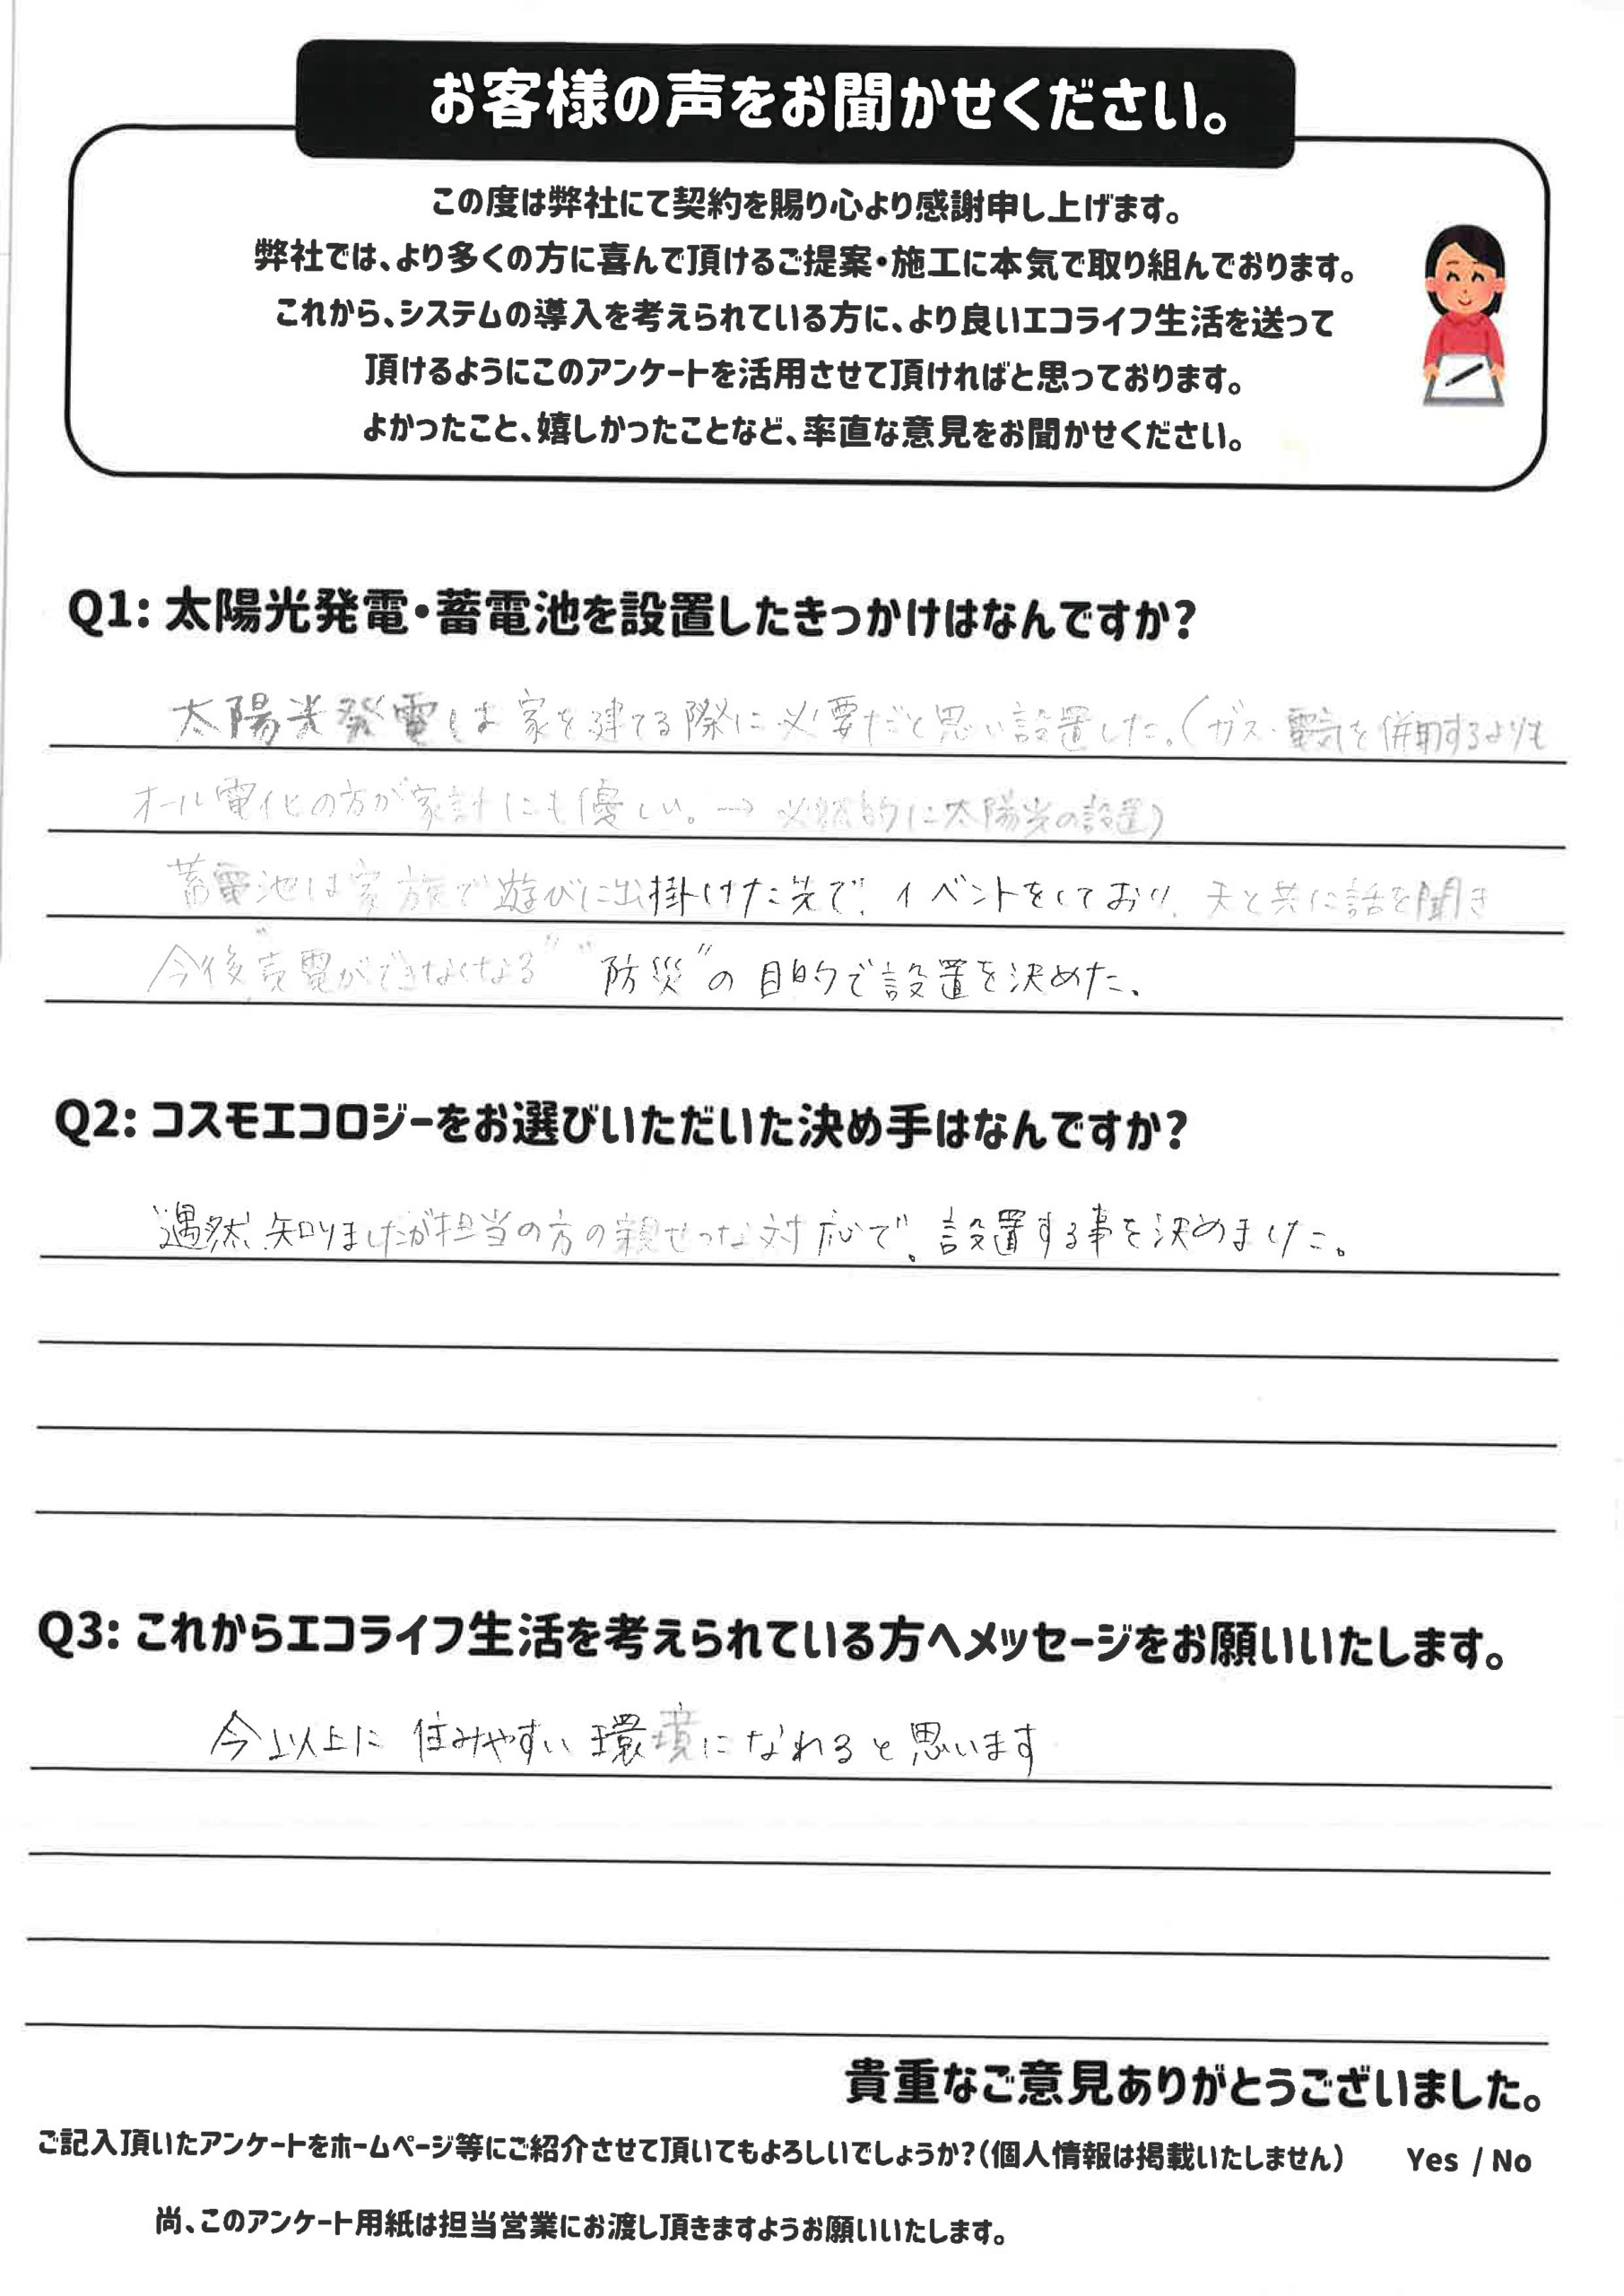 お客様の声をお聞かせください。
この度は弊社にて契約を賜り心より感謝申し上げます。
弊社では、より多くの方に喜んで頂けるご提案・施工に本気で取り組んでおります。
これから、システムの導入を考えられている方に、より良いエコライフ生活を送って
頂けるようにこのアンケートを活用させて頂ければと思っております。
よかったこと、嬉しかったことなど、率直な意見をお聞かせください。
Q1: 太陽光発電・蓄電池を設置したきっかけはなんですか?
太陽光発電は家を建てる際に必要だと思い設置した。(ガス・電気を併用するよりも
オール電化の方が家計にも優しい。→必然的に太陽光の設置)
蓄電池は家族で遊びに出掛けた先で、イベントをしており、夫と共に話を聞き
今後"売電ができなくなる" "防災"の目的で設置を決めた、
Q2: コスモエコロジーをお選びいただいた決め手はなんですか?
遇然、知りましたが担当の方の親せつな対応で、設置する事を決めました。
Q3: これからエコライフ生活を考えられている方へメッセージをお願いいたします。
今以上に 住みやすい環境になれると思います
貴重なご意見ありがとうございました。
ご記入頂いたアンケートをホームページ等にご紹介させて頂いてもよろしいでしょうか?(個人情報は掲載いたしません) Yes / No
尚、このアンケート用紙は担当営業にお渡し頂きますようお願いいたします。